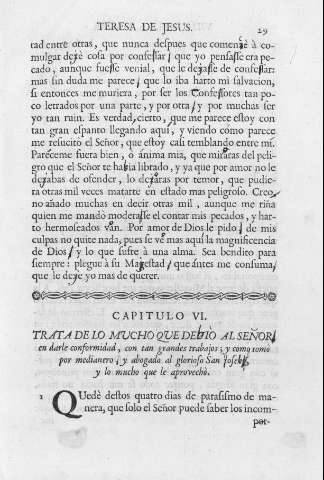 TERESA DE JESUS. 29
tad entre otras, que nunca despues que comenzè à co-
mulgar dexè cosa por confessar, que yo pensasse era pe-
cado, aunque fuesse venial, que le dexasse de confessar:
mas sin duda me parece, que lo iba harto mi salvacion,
si entonces me muriera, por ser los Confessores tan po-
co letrados por una parte, y por otra, y por muchas ser
yo tan ruin. Es verdad, cierto, que me parece estoy con
tan gran espanto llegando aqui, y viendo còmo parece
me resucitò el Señor, que estoy casi temblando entre mi.
Pareceme fuera bien, ò anima mia, que miráras del peli-
gro que el Señor te habia librado, y ya que por amor no le
dexabas de ofender, lo dexáras por temor, que pudie-
ra otras mil veces matarte en estado mas peligroso. Creo,
no añado muchas en decir otras mil, aunque me riña
quien me mandò moderasse el contar mis pecados, y har-
to hermoseados vàn. Por amor de Dios le pido, de mis
culpas no quite nada, pues se vè mas aqui la magnificencia
de Dios, y lo que sufre à una alma. Sea bendito para
siempre: plegue à su Magestad, que ántes me consuma,
que le dexe yo mas de querer.
CAPITULO VI.
TRATA DE LO MUCHO QUE DEBIO AL SEÑOR
en darle conformidad, con tan grandes trabajos; y como tomò
por medianero, y abogado al glorioso San Joseph,
y lo mucho que le aprovechò.
1 Quedè destos quatro dias de parasismo de ma-
nera, que solo el Señor puede saber los incom-
por-